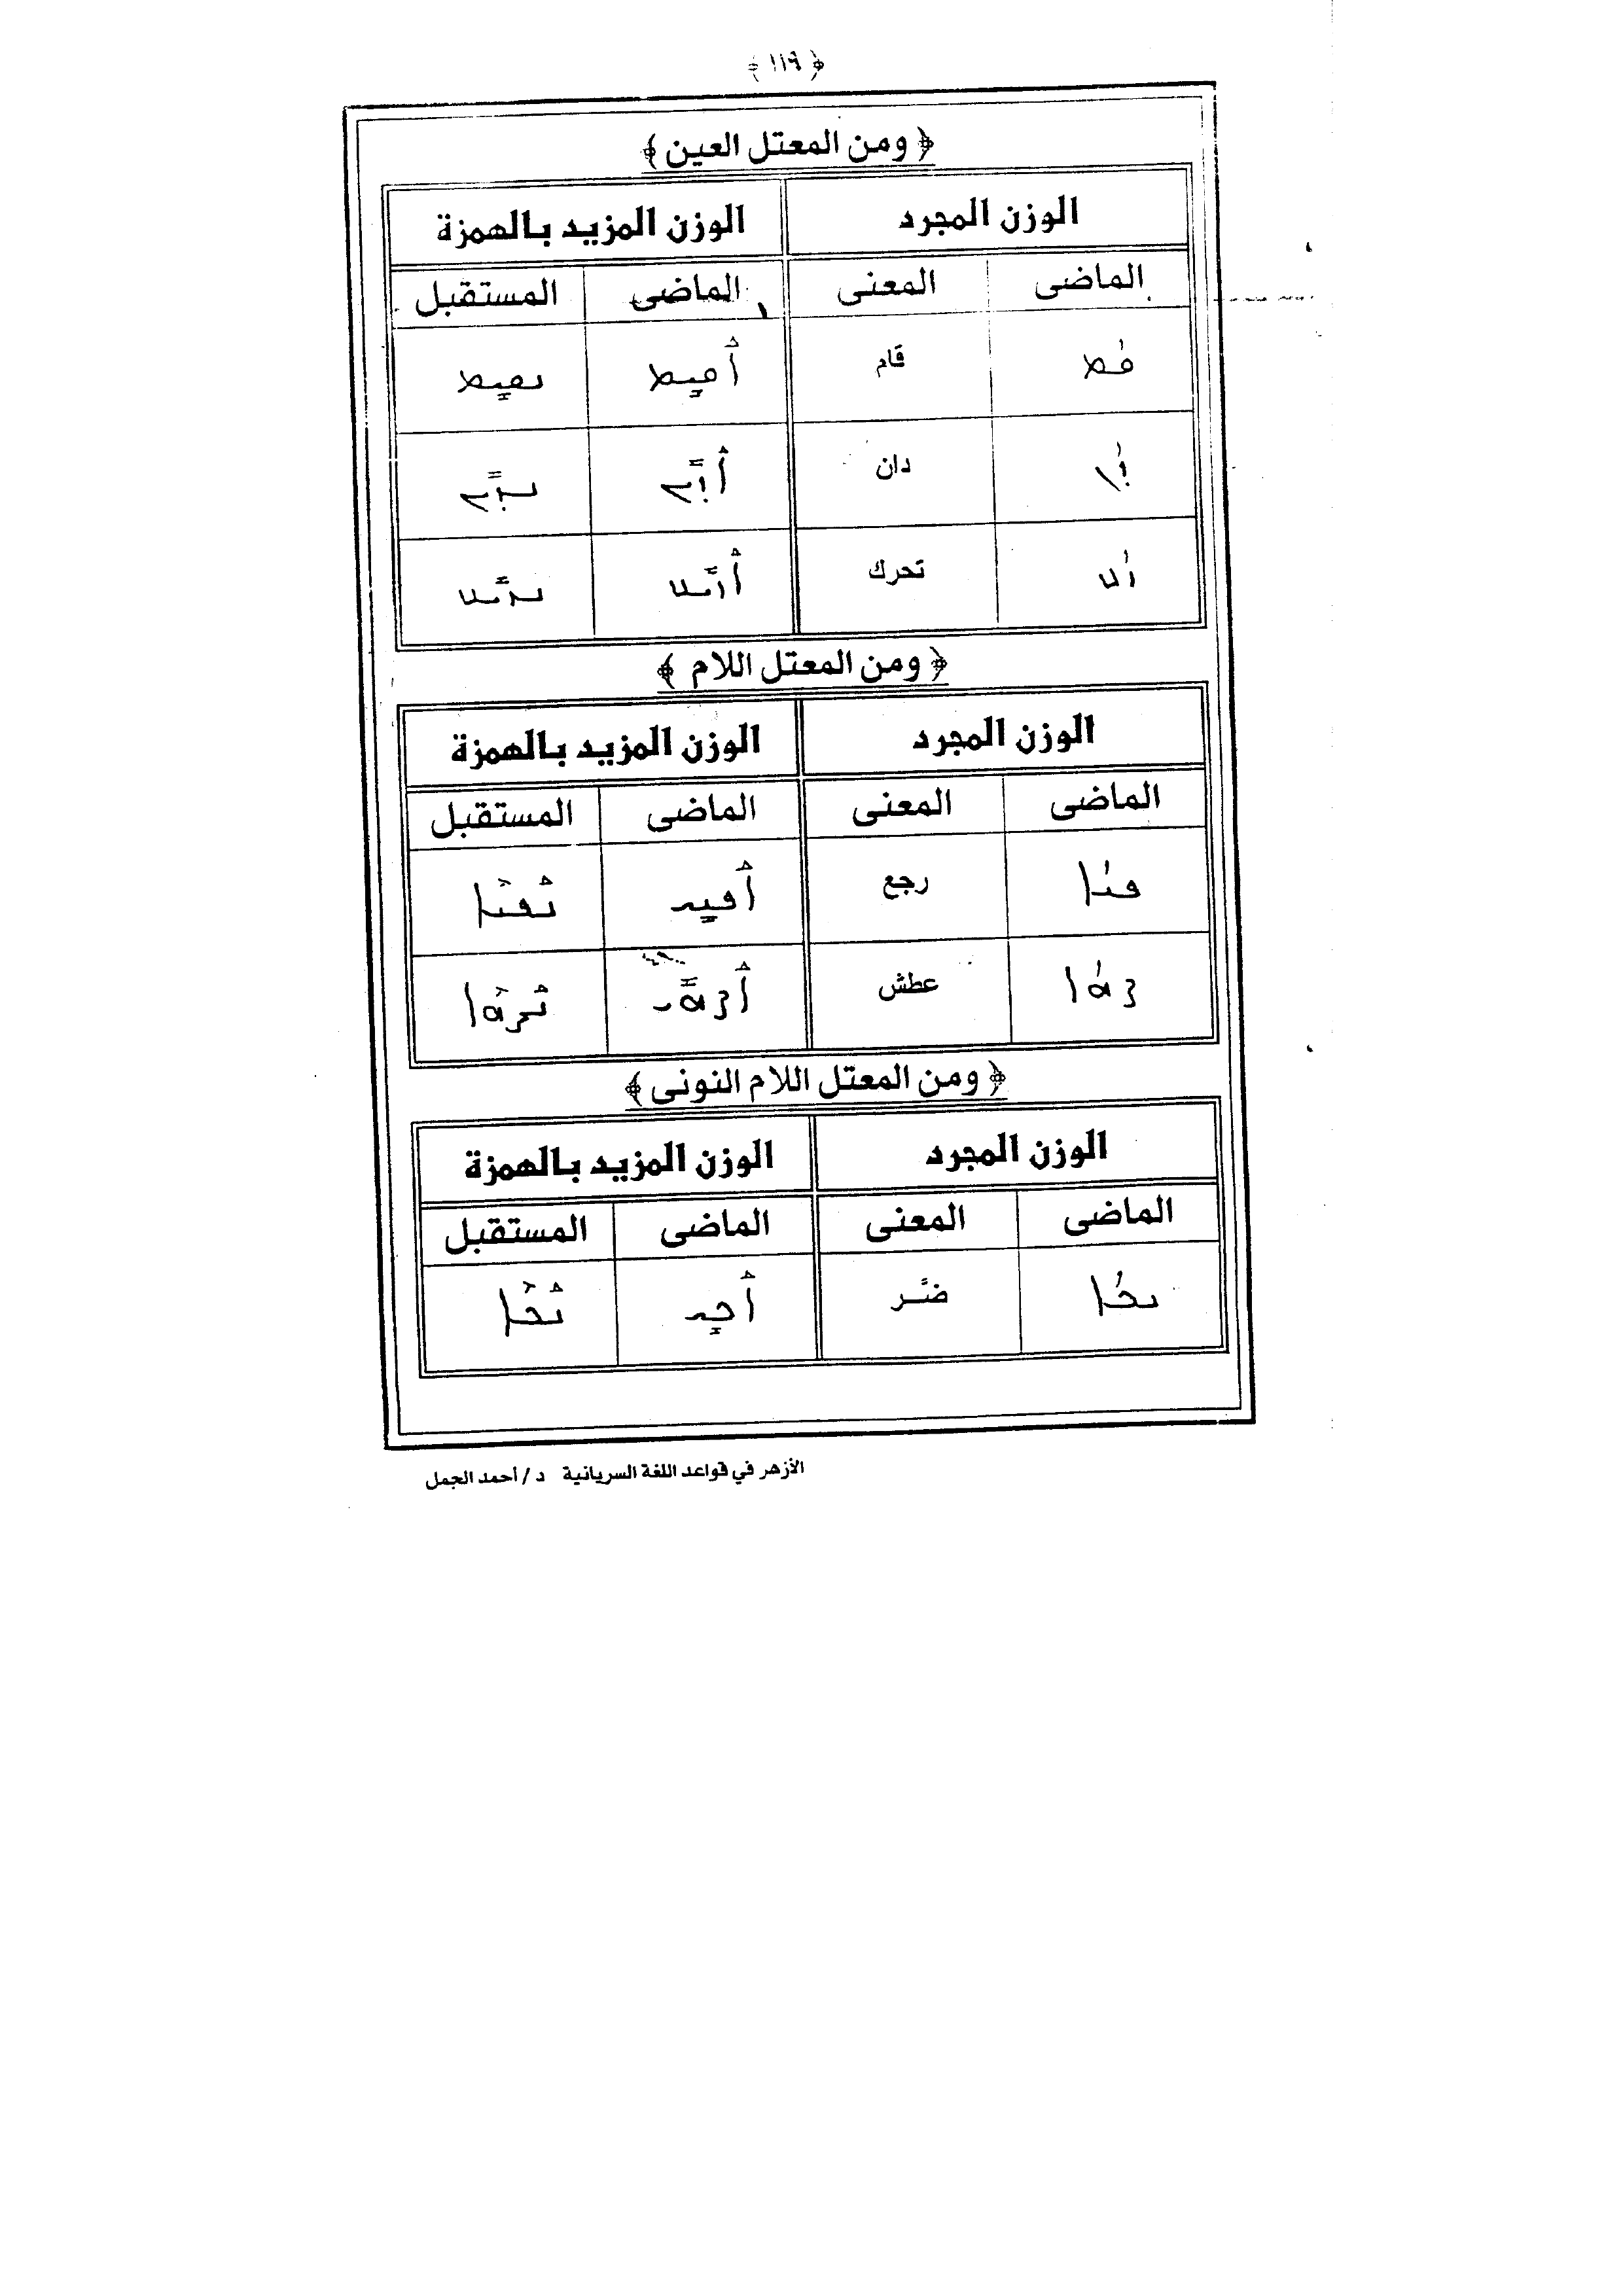 ﴿ ١١٩ ﴾
﴿ ومن المعتل العين ﴾
الوزن المجرد الوزن المزيد بالهمزة
الماضى المعنى الماضى المستقبل
ܩܳܡ قام ܐܰܩܺܝܡ ܢܩܺܝܡ
ܕܳܢ دان ܐܰܕܺܝܢ ܢܕܺܝܢ
ܙܳܥ تحرك ܐܰܙܺܝܥ ܢܙܺܝܥ
﴿ ومن المعتل اللام ﴾
الوزن المجرد الوزن المزيد بالهمزة
الماضى المعنى الماضى المستقبل
ܦܢܳܐ رجع ܐܰܦܢܺܝ ܢܰܦܢܶܐ
ܨܗܳܐ عطش ܐܰܨܗܺܝ ܢܰܨܗܶܐ
﴿ ومن المعتل اللام النونى ﴾
الوزن المجرد الوزن المزيد بالهمزة
الماضى المعنى الماضى المستقبل
ܢܟܳܐ ضـَّـر ܐܰܟܺܝ ܢܰܟܶܐ
الأزهر في قواعد اللغة السريانية د/ أحمد الجمل